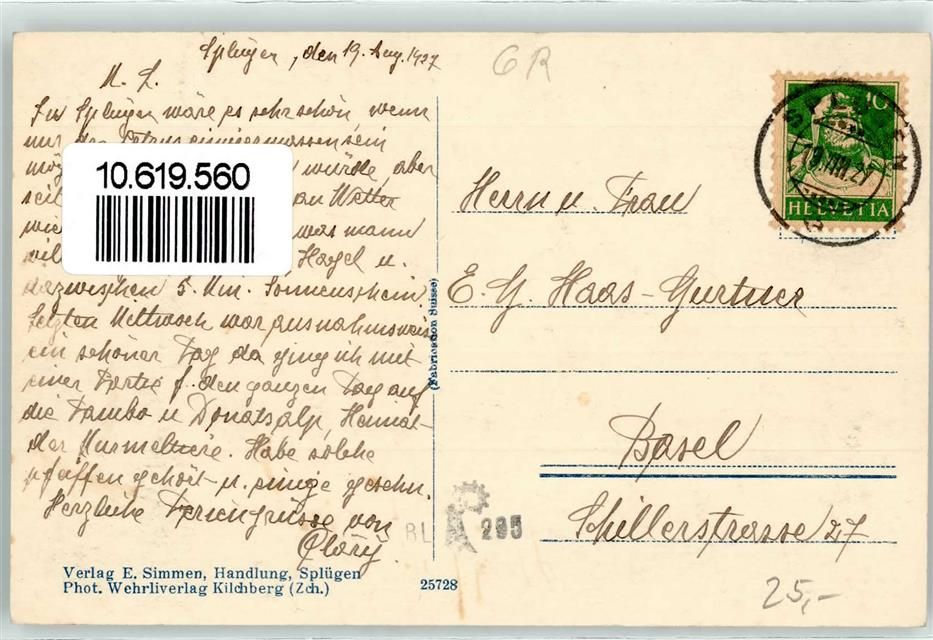 Splügen, den 19. Aug. 1927
M. L.
In Splügen wäre es sehr schön, wenn
nur das einigermassen sein
würde, aber
seit an Wetter
was mann
will Hagel u.
dazwischen 5 Min. Sonnenschein
letzten Mittwoch war ausnahmsweis
ein schöner Tag da ging ich mit
einer Partie f. den ganzen Tag auf
die Tambo u Donatsalp, Heimat
der Murmeltiere. Habe solche
pfeiffen gehört u. einige gesehn.
Herzliche Feriengrüsse von
6R
10
HELVETIA
SPLÜGEN
19.VIII.27
10.619.560
Herrn u. Frau
E. G. Haas-Gurtner
Basel
Schillerstrasse 27
(Fabrication Suisse)
BL 295
Verlag E. Simmen, Handlung, Splügen
Phot. Wehrliverlag Kilchberg (Zch.)
25728
25,-